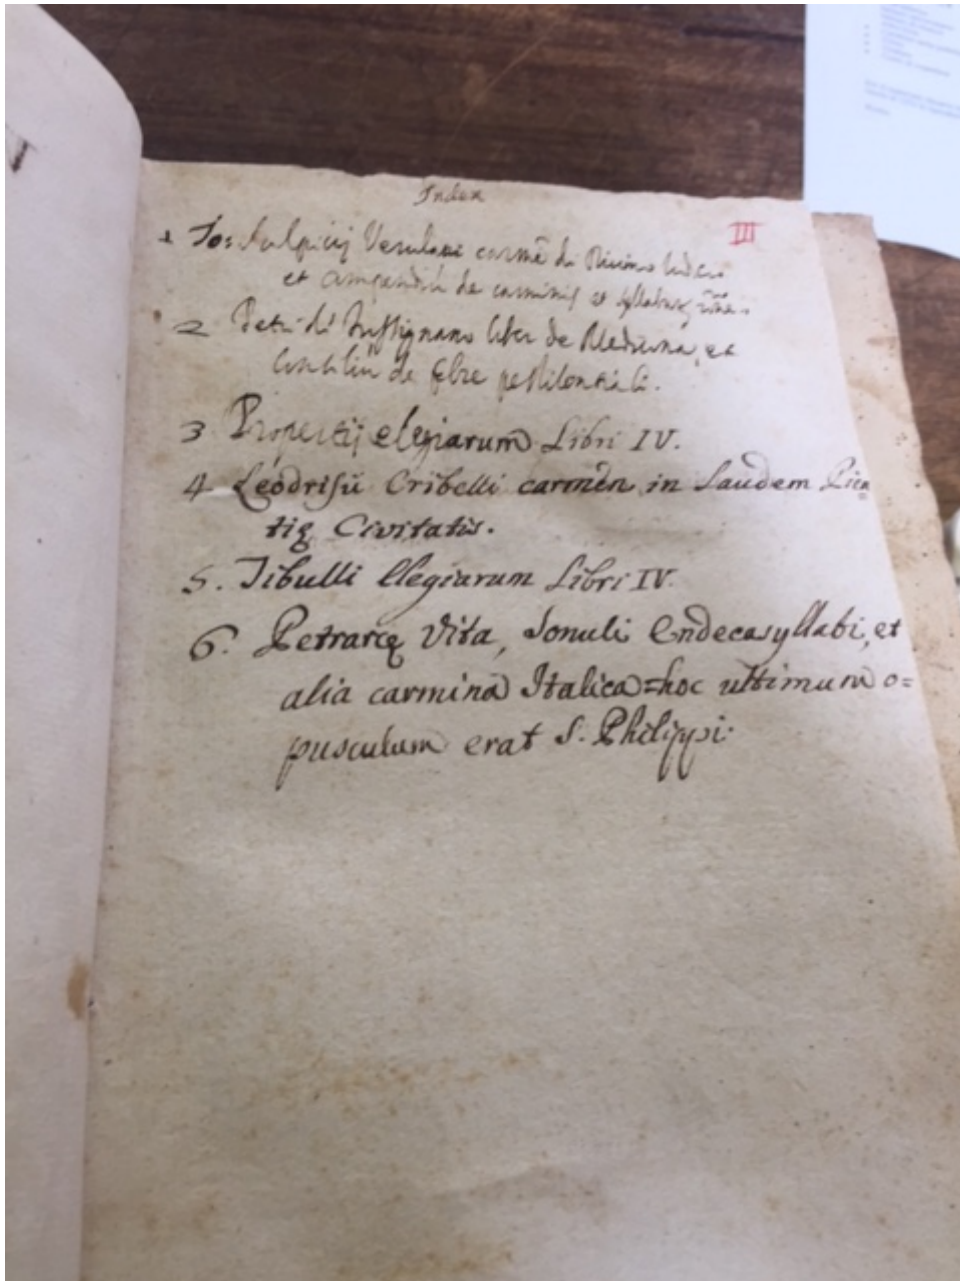 Index
III
1 Jo: Sulpicij Verulani carmē de
et compendiū de carminis et syllabarū
2 Petri de Tussignano liber de Medicina, et
consiliū de febre pestilentiali.
3 Propertij elegiarum Libri IV.
4 Leodrisii Cribelli carmen in Laudem Pien
tię Civitatis.
5. Tibulli Elegiarum Libri IV.
6. Petrarcę Vita, Sonuli Endecasyllabi, et
alia carmina Italica=hoc ultimum o=
pusculum erat S. Philippi.